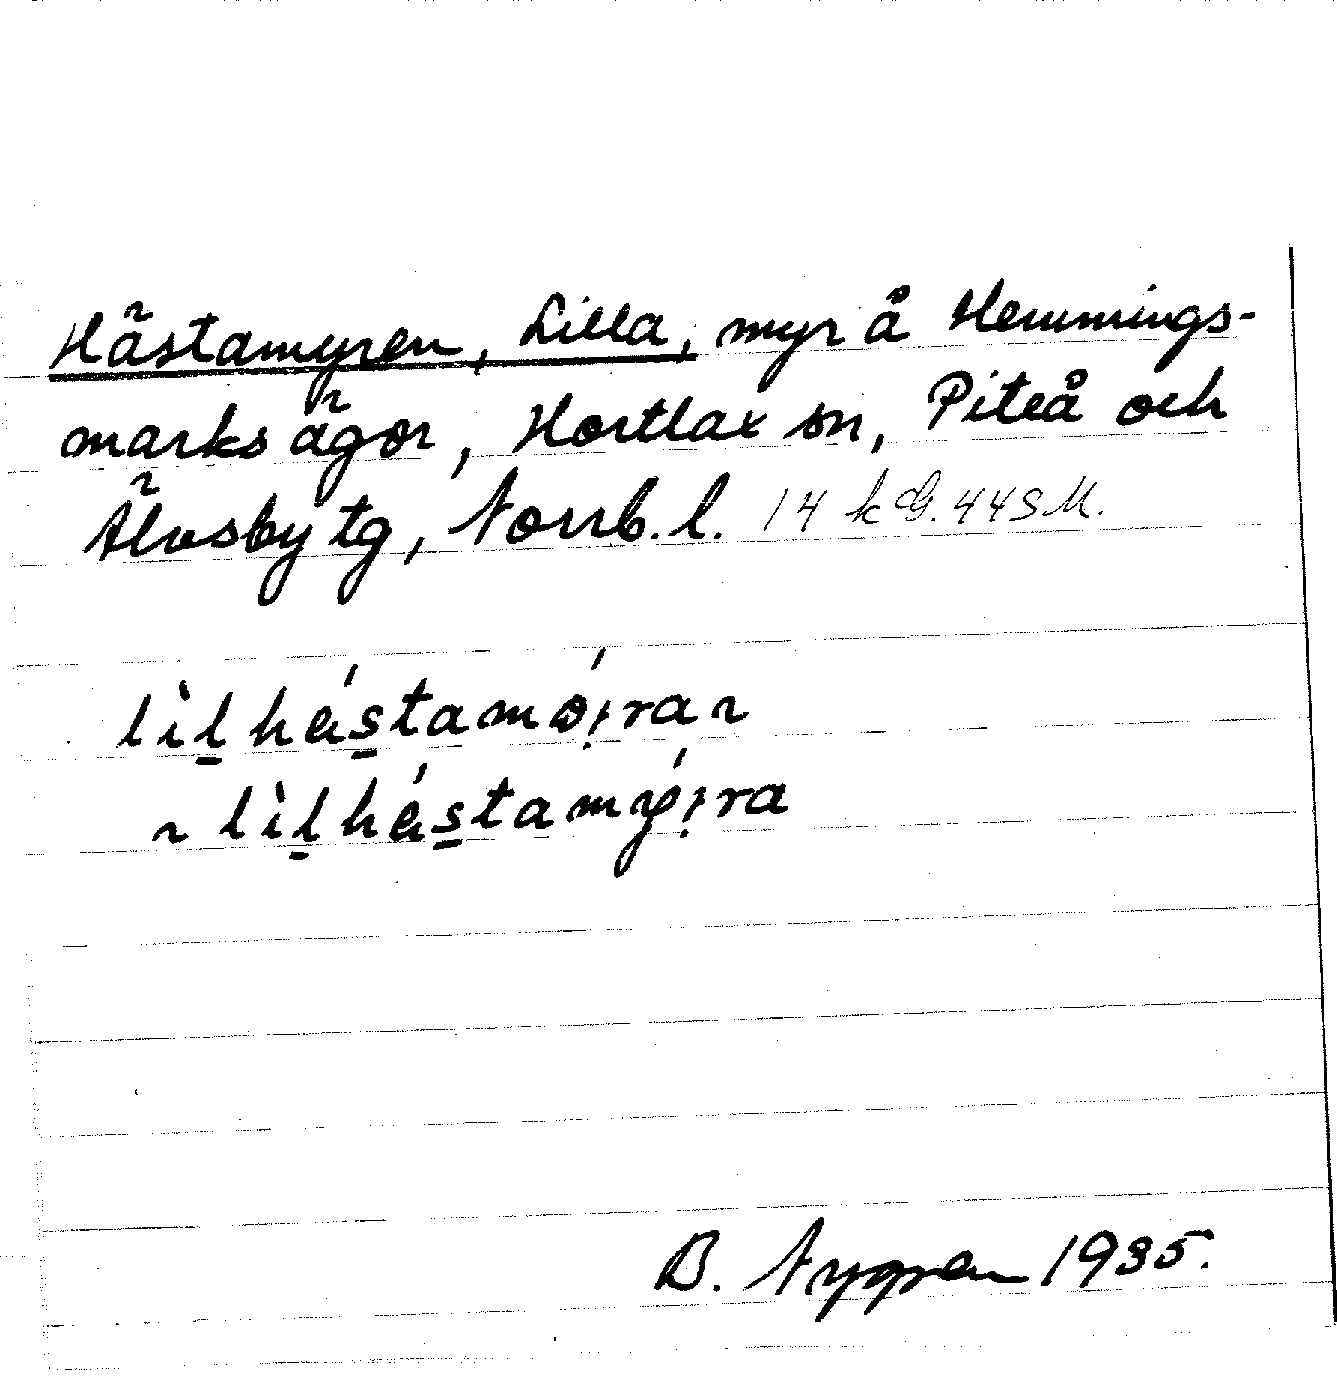 Hästamyren, Lilla, myr å Hemmings-
marks ägor, Hortlax sn, Piteå och
Älvsby tg, Norrb. l. 14 k G. 44 S M.
lìl̲ hás̲tamǿ̨ra ~
~ lìl̲hás̲tamý̨ra
B. Nygren 1935.